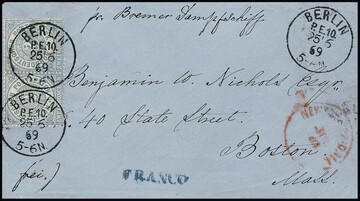 pr. Bremer Dampfschiff
BERLIN
P.E.10.
25 5
69
5-6N.
BERLIN
P.E.10.
25 5
69
5-6N.
BERLIN
P.E.10.
25 5
69
5-6N
Benjamin W. Nichols Esqr.
40 State Street.
Boston
Mass.
frei.)
FRANCO
NEW